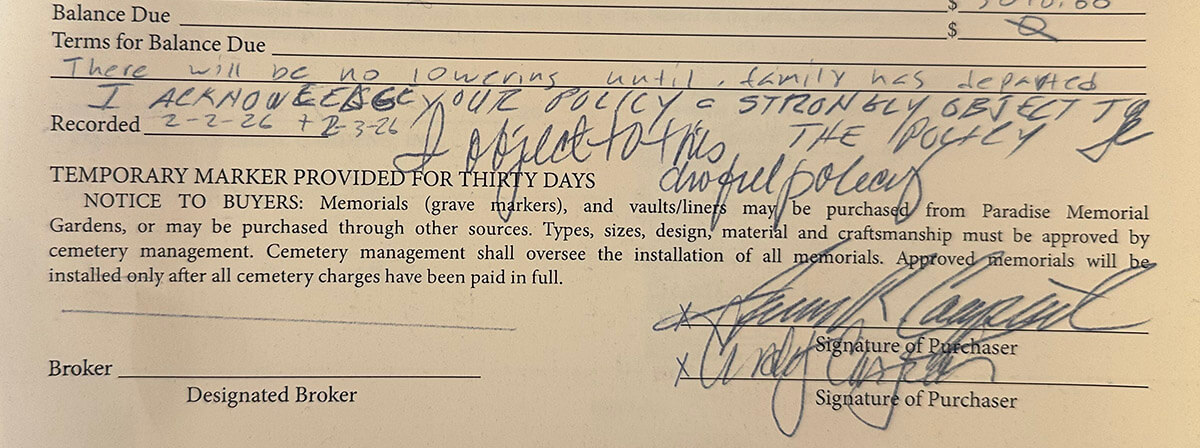 Balance Due $
Terms for Balance Due $ 0
There will be no lowering until family has departed
I ACKNOWLEDGE YOUR POLICY & STRONGLY OBJECT TO
Recorded 2-2-26 + 2-3-26 THE POLICY
I object to this
TEMPORARY MARKER PROVIDED FOR THIRTY DAYS policy
NOTICE TO BUYERS: Memorials (grave markers), and vaults/liners may be purchased from Paradise Memorial
Gardens, or may be purchased through other sources. Types, sizes, design, material and craftsmanship must be approved by
cemetery management. Cemetery management shall oversee the installation of all memorials. Approved memorials will be
installed only after all cemetery charges have been paid in full.
X
Signature of Purchaser
X
Broker
Designated Broker
Signature of Purchaser